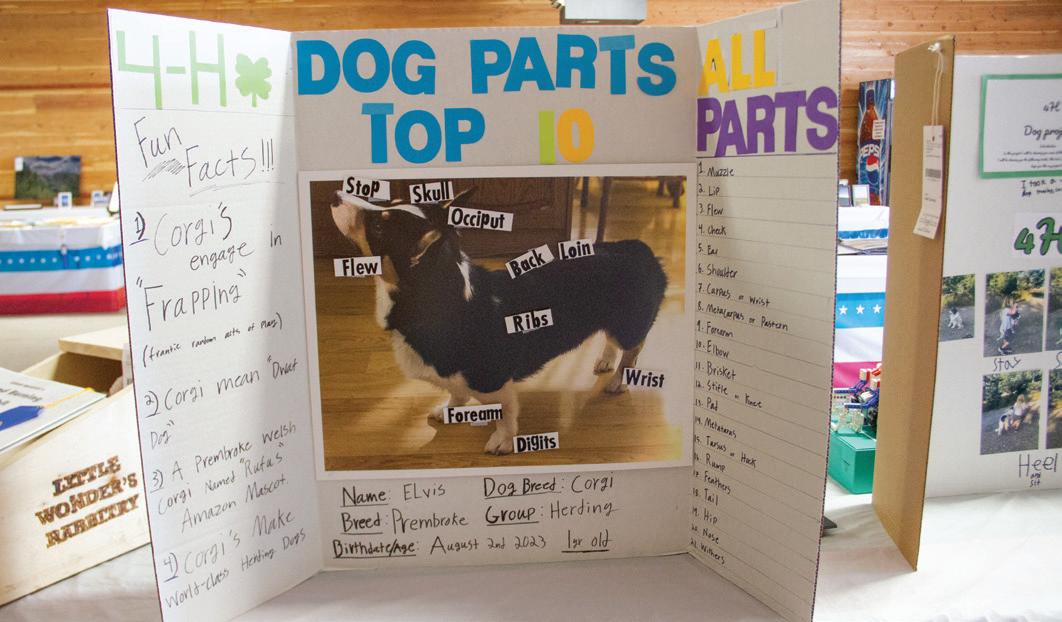 4-H
Fun
Facts!!!
1) Corgi's
engage In
"Frapping"
(frantic random acts of play)
2) Corgi mean "Dwarf
Dog"
3) A Prembroke Welsh
Corgi Named "Rufus"
Amazon Mascot.
4) Corgi's Make
World-class Herding Dogs
DOG PARTS
TOP 10
Stop
Skull
Occiput
Flew
Back
Loin
Ribs
Wrist
Forearm
Digits
Name: ELvis
Dog Breed: Corgi
Breed: Prembroke
Group: Herding
Birthdate/Age: August 2nd 2023 1yr old
ALL
PARTS
1. Muzzle
2. Lip
3. Flew
4. Cheek
5. Ear
6. Shoulder
7. Carpus or Wrist
8. Metacarpus or Pastern
9. Forearm
10. Elbow
11. Brisket
12. Stifle or Knee
13. Pad
14. Metatarus
15. Tarsus or Hock
16. Rump
17. Feathers
18. Tail
19. Hip
20. Nose
21. Withers
LITTLE
WONDER'S
RABBITRY
PEPSI
4H
Dog proj
I took a
4H
Stay
Heel
and
Sit